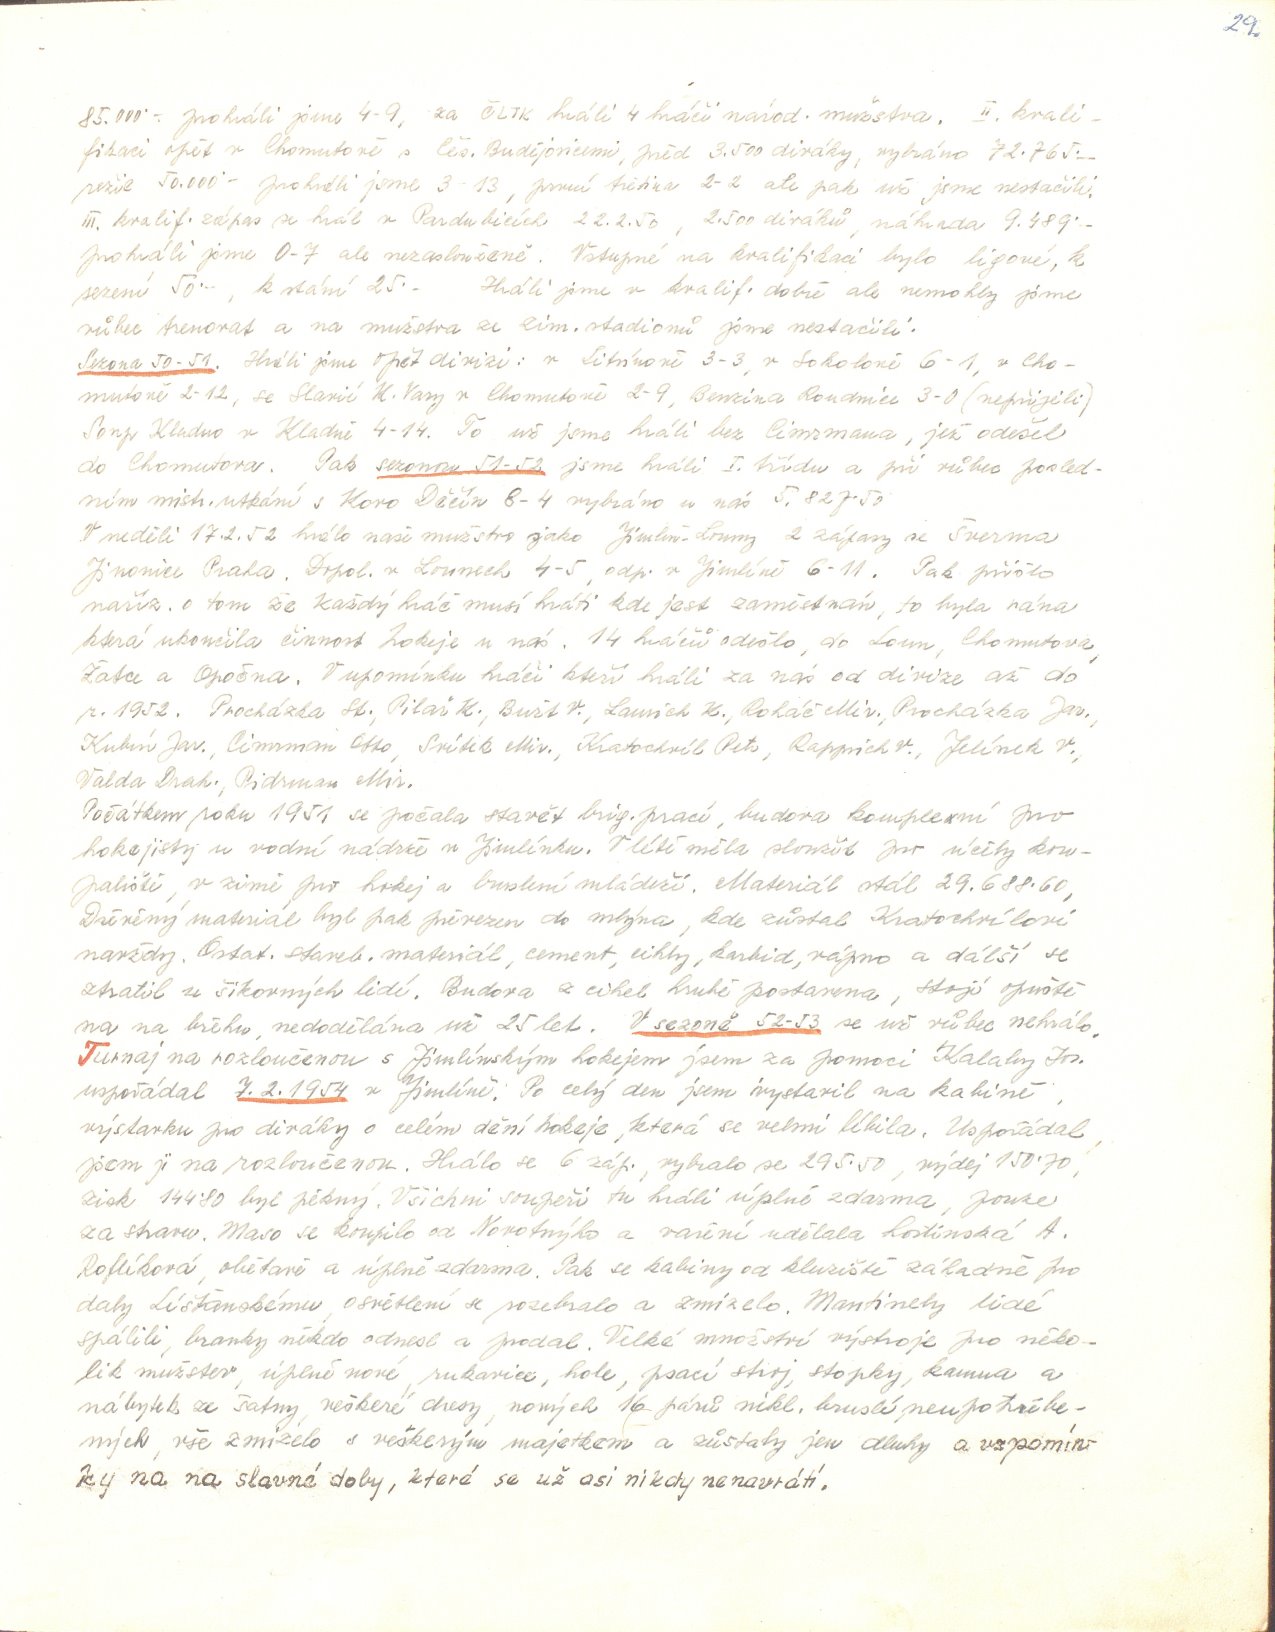 29.
85.000·- prohráli jsme 4-9, za ČLTK hráli 4 hráči národ. mužstva. II. kvali-
fikaci opět v Chomutově s Čes. Budějovicemi, před 3.500 diváky, vybráno 72.765.--
režie 50.000·- prohráli jsme 3-13, první třetina 2-2 ale pak už jsme nestačili.
III. kvalif. zápas se hrál v Pardubicích 22.2.50, 2.500 diváků, náhrada 9.489·-
prohráli jsme 0-7 ale nezaslouženě. Vstupné na kvalifikaci bylo ligové, k
sezení 50·-, k stání 25·- Hráli jsme v kvalif. dobře ale nemohly jsme
vůbec trenovat a na mužstva ze zim. stadionů jsme nestačili.
Sezona 50-51. Hráli jsme opět divizi: v Litvínově 3-3, v Sokolově 6-1, v Cho-
mutově 2-12, se Slavií K. Vary v Chomutově 2-9, Benzina Roudnice 3-0 (nepřijeli)
Sonp Kladno v Kladně 4-14. To už jsme hráli bez Cimrmana, jež odešel
do Chomutova. Pak sezonou 51-52 jsme hráli I. třídu a při vůbec posled-
ním mistr. utkání s Kovo Děčín 8-4 vybráno u nás 5.827·50
V neděli 17.2.52 hrálo naše mužstvo jako Jimlín-Louny 2 zápasy se Šverma
Jinonice Praha. Dopol. v Lounech 4-5, odp. v Jimlíně 6-11. Pak přišlo
naříz. o tom že každý hráč musí hráti kde jest zaměstnán, to byla rána
která ukončila činnost hokeje u nás. 14 hráčů odešlo, do Loun, Chomutova,
Žatce a Opočna. V upomínku hráči kteří hráli za nás od divize až do
r. 1952. Procházka St., Pilař K., Bušt V., Laurich K., Roháč Mir., Procházka Jar.,
Kubín Jar., Cimrman Otto, Svítek Mir., Kratochvíl Petr, Rappich V., Jelínek V.,
Valda Drah., Pidrman Mir.
Počátkem roku 1951 se počala stavět brig. prací, budova komplexní pro
hokejisty u vodní nádrže v Jimlínku. V létě měla sloužit pro účely kou-
paliště, v zimě pro hokej a bruslení mládeži. Materiál stál 29.688·60,
Dřevěný materiál byl pak převezen do mlýna, kde zůstal Kratochvílovi
navždy. Ostat. staveb. materiál, cement, cihly, karbid, vápno a další se
ztratil u šikovných lidí. Budova z cihel hrubě postavena, stojí opuště
na na břehu, nedodělána už 25 let. V sezoně 52-53 se už vůbec nehrálo.
Turnaj na rozloučenou s Jimlínským hokejem jsem za pomoci Kalaby Jos.
uspořádal 7.2.1954 v Jimlíně. Po celý den jsem vystavil na kabině,
výstavku pro diváky o celém dění hokeje, která se velmi líbila. Uspořádal
jsem ji na rozloučenou. Hrálo se 6 záp., vybralo se 295·50, výdej 150·70,
zisk 144·80 byl pěkný. Všichni soupeři tu hráli úplně zdarma, pouze
za stravu. Maso se koupilo od Novotnýho a vaření udělala hostinská A.
Roflíková, obětavě a úplně zdarma. Pak se kabiny od kluziště záhadně pro
daly Líšťanskému, osvětlení se rozebralo a zmizelo. Mantinely lidé
spálili, branky někdo odnesl a prodal. Velké množství výstroje pro něko-
lik mužstev, úplně nové, rukavice, hole, psací stroj, stopky, kamna a
nábytek ze šatny, veškeré dresy, nových 16 párů nikl. bruslí, neupotřebe-
ných, vše zmizelo s veškerým majetkem a zůstaly jen dluhy a vzpomín-
ky na na slavné doby, které se už asi nikdy nenavrátí.